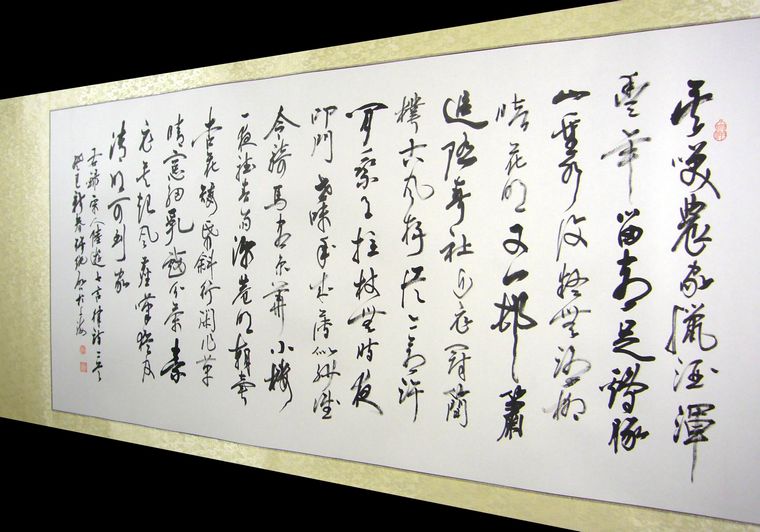 莫笑農家臘酒渾
豐年留客足雞豚
山重水復疑無路柳
暗花明又一邨簫
追隨春社近衣冠簡
樸古風存從今若許
閒乘月拄杖無時夜
叩門世味年來薄似紗誰
令騎馬客京華小樓
一夜聽春雨深巷明朝賣
杏花矮紙斜行閑作草
晴窗細乳戲分茶素
衣莫起風塵嘆猶及
清明可到家
宋人陸游七言律詩二首
癸巳新春於上海